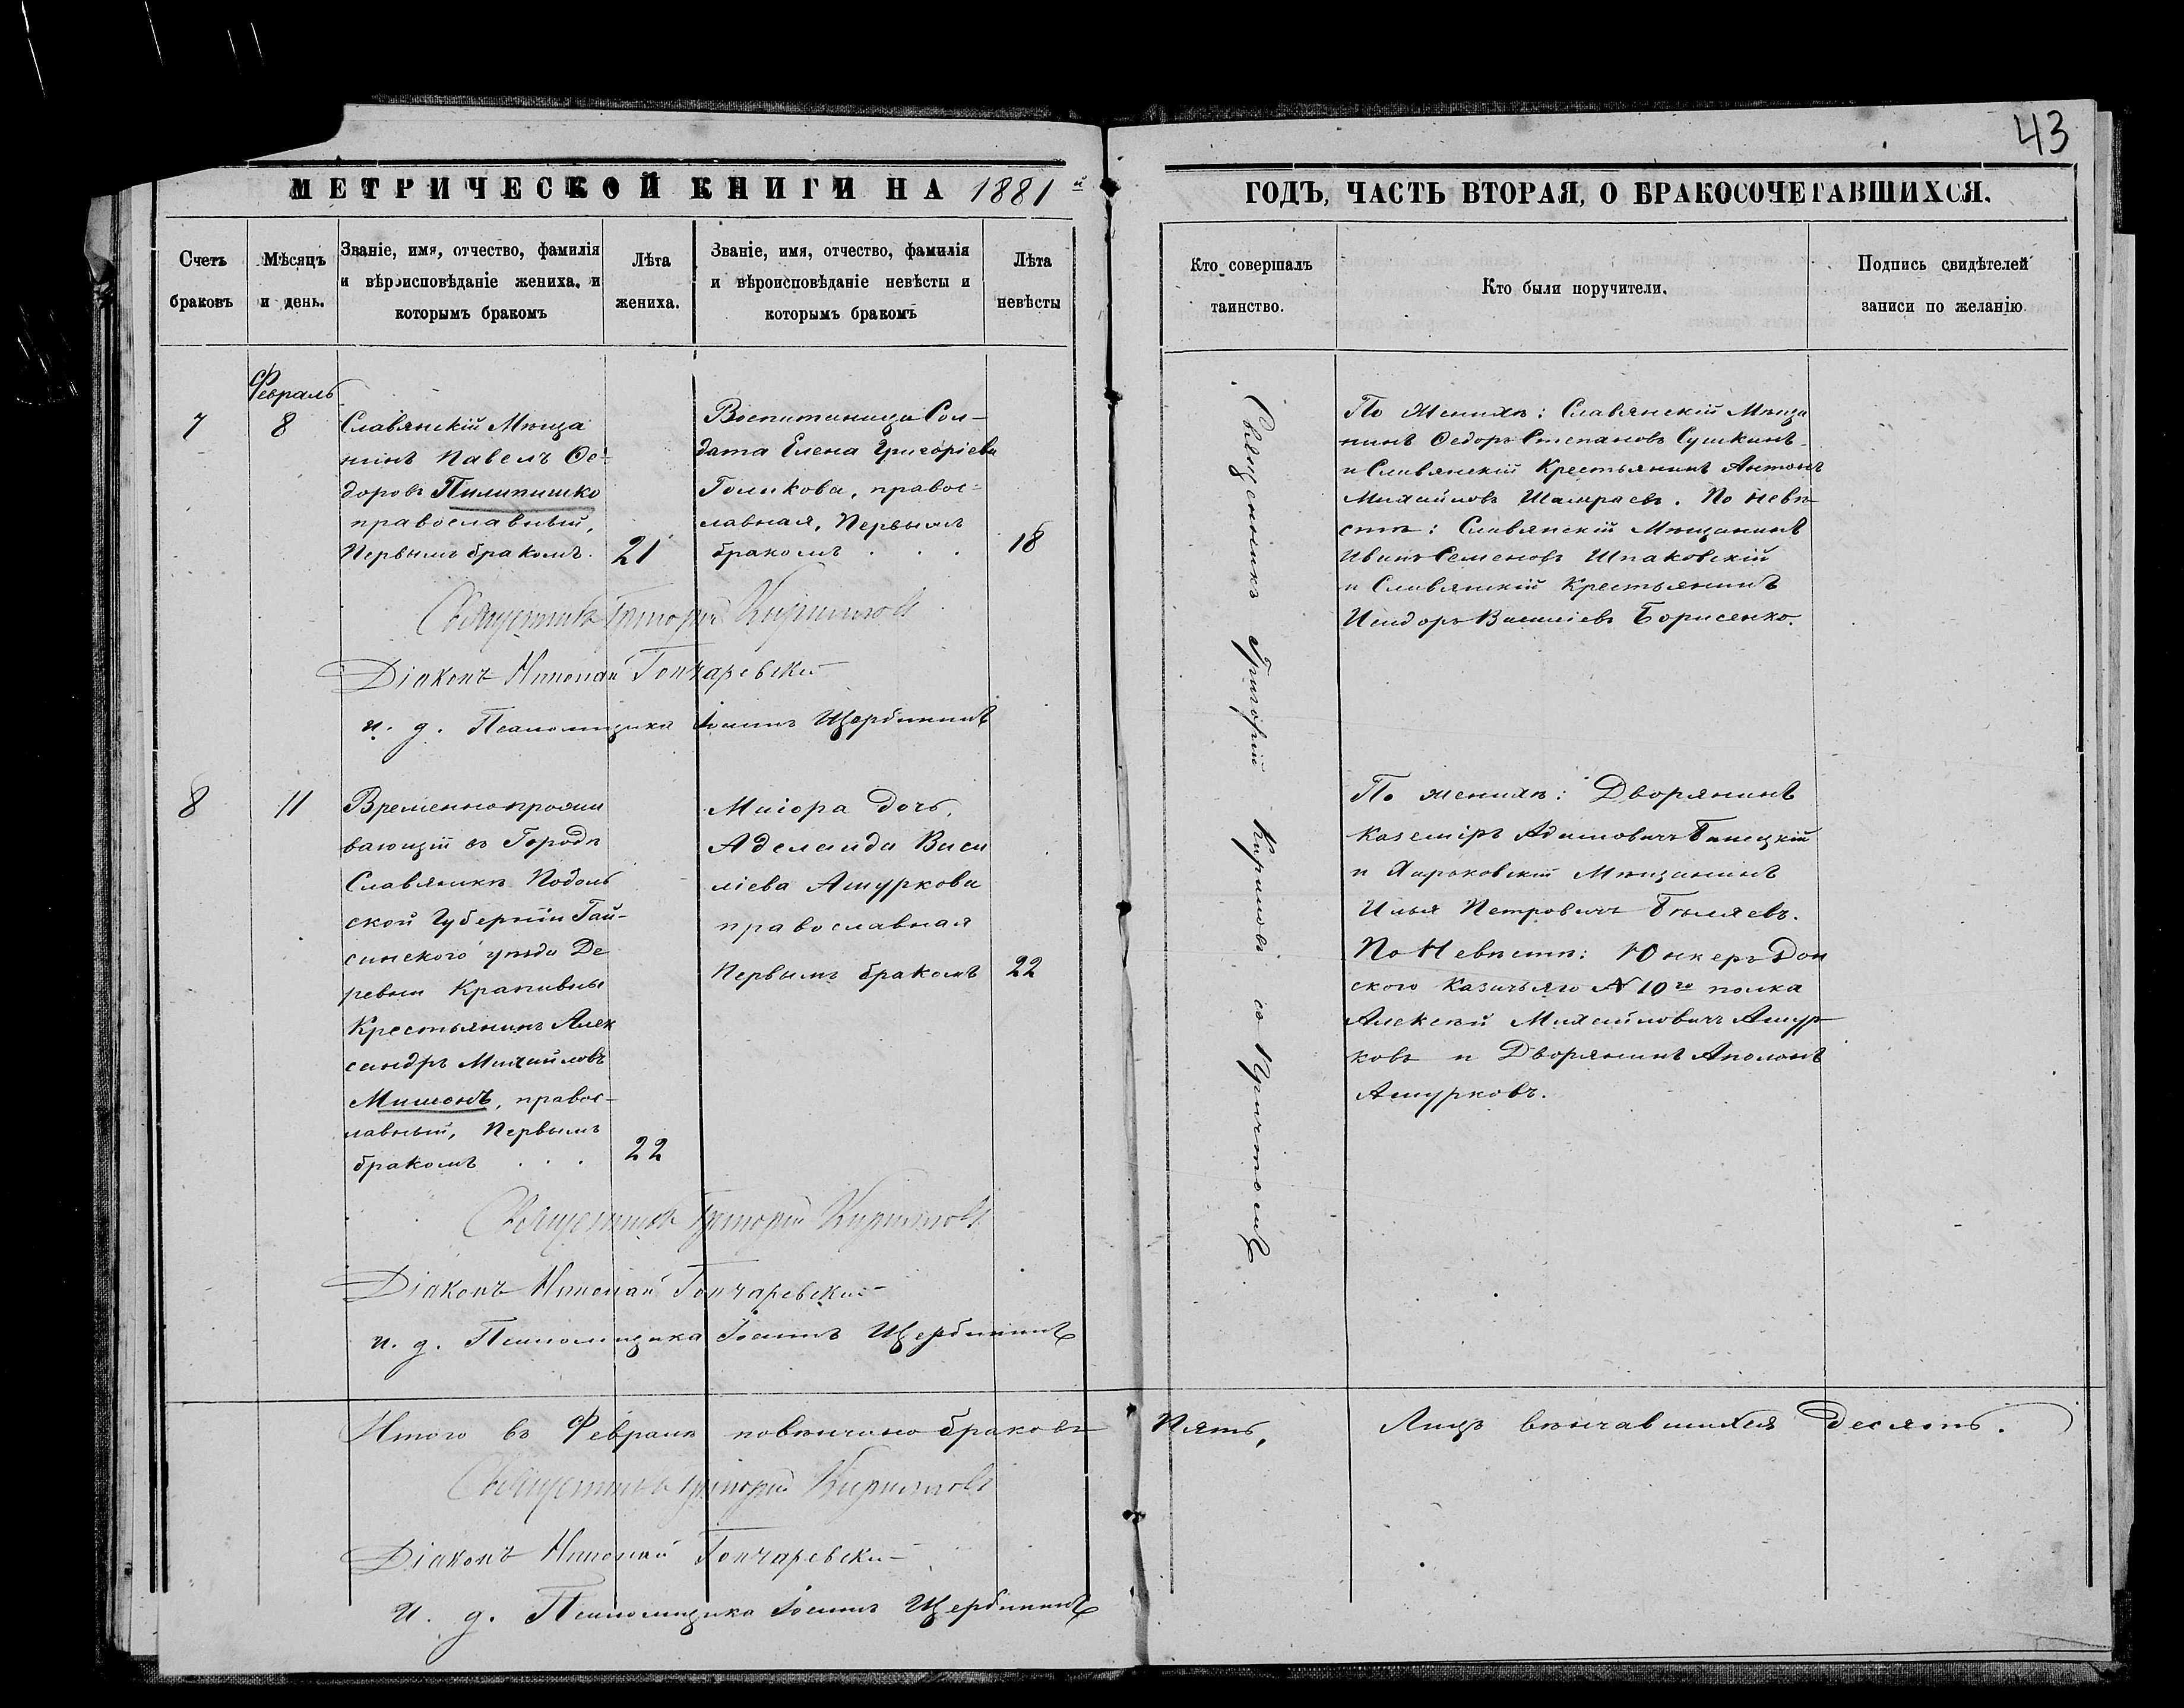 43
МЕТРИЧЕСКОЙ КНИГИ НА 1881й
ГОДЪ, ЧАСТЬ ВТОРАЯ, О БРАКОСОЧЕТАВШИХСЯ.
Счетъ
браковъ
Мѣсяцъ
и день.
Званіе, имя, отчество, фамилія
и вѣроисповѣданіе жениха, и
которымъ бракомъ
Лѣта
жениха.
Званіе, имя, отчество, фамилія
и вѣроисповѣданіе невѣсты и
которымъ бракомъ
Лѣта
невѣсты
Кто совершалъ
таинство.
Кто были поручители.
Подпись свидѣтелей
записи по желанію
Февраль
7
8
Славянскій Мѣща
нинъ Павелъ Ѳе-
доровъ Пилипишко
православный,
Первымъ бракомъ.
21
Воспитанница Сол-
дата Елена Григоріева
Голикова, правос-
лавная, Первымъ
бракомъ . . .
18
Священникъ Григорій Кириловъ съ Причтомъ
По Женихѣ: Славянскій Мѣща
нинъ Ѳедоръ Степановъ Сушкинъ
и Славянскій Крестьянинъ Антонъ
Михайловъ Шамраевъ. По Невѣ
стѣ: Славянскій Мѣщанинъ
Иванъ Семеновъ Шпаковскій
и Славянскій Крестьянинъ
Исидоръ Василіевъ Борисенко.
Священникъ Григорій Кириловъ
Діаконъ Николай Гончаревскій
и. д. Псаломщика Іоаннъ Щербининъ
8
11
Временнопрожи
вающій въ Городѣ
Славянскѣ Подоль
ской Губерніи Гай-
синского уѣзда Де
ревни Крапивны
Крестьянинъ Алек
сандръ Михайловъ
Мишонъ, правос-
лавный, Первымъ
бракомъ . . .
22
Маіора дочь,
Аделаида Васи
ліева Ашуркова
православная
Первымъ бракомъ
22
По женихѣ: Дворянинъ
Каземіръ Адамовичъ
и Харьковскій Мѣщанинъ
Илья Петровичъ Бѣляевъ.
По Невѣстѣ: Юнкеръ Дон
ского Казачьяго № 10го полка
Алексѣй Михайловичъ Ашур
ковъ и Дворянинъ Аполонъ
Ашурковъ.
Священникъ Григорій Кириловъ
Діаконъ Николай Гончаревскій
и. д. Псаломщика Іоаннъ Щербининъ
Итого въ Февралѣ повѣнчано браковъ Пять, Лицъ вѣнчавшихся Десять.
Священникъ Григорій Кириловъ
Діаконъ Николай Гончаревскій
И. д. Псаломщика Іоаннъ Щербининъ